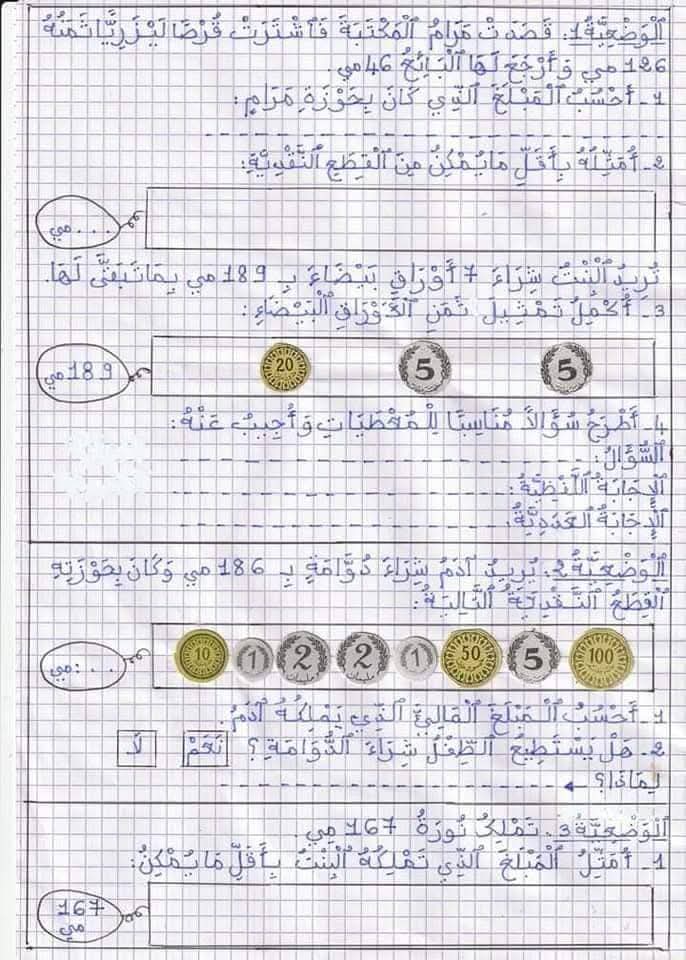 الْوَضْعِيَّةُ 1: قَصَدَتْ مَرَامُ الْمَكْتَبَةَ فَاشْتَرَتْ قُرْصًا لَيْزَرِيًّا ثَمَنُهُ
126 مي وَ أَرْجَعَ لَهَا الْبَائِعُ 46 مي.
1- أَحْسُبُ الْمَبْلَغَ الَّذِي كَانَ بِحَوْزَةِ مَرَامٍ:
2- أُمَثِّلُهُ بِأَقَلِّ مَا يُمْكِنُ مِنَ الْقِطَعِ النَّقْدِيَّةِ:
... مي
تُرِيدُ الْبِنْتُ شِرَاءَ 7 أَوْرَاقٍ بَيْضَاءَ بِـ 189 مي بِمَا تَبَقَّى لَهَا.
3- أُكْمِلُ تَمْثِيلَ ثَمَنِ الْأَوْرَاقِ الْبَيْضَاءِ:
189 مي 20 5 5
4- أَطْرَحُ سُؤَالًا مُنَاسِبًا لِلْمُعْطَيَاتِ وَ أُجِيبُ عَنْهُ:
السُّؤَالُ:
الْإِجَابَةُ اللَّفْظِيَّةُ:
الْإِجَابَةُ الْعَدَدِيَّةُ:
الْوَضْعِيَّةُ 2: يُرِيدُ آدَمُ شِرَاءَ دُوَّامَةٍ بِـ 186 مي وَ كَانَ بِحَوْزَتِهِ
الْقِطَعُ النَّقْدِيَّةُ التَّالِيَةُ:
... مي 10 1 2 2 1 50 5 100
1- أَحْسُبُ الْمَبْلَغَ الْمَالِيَّ الَّذِي يَمْلِكُهُ آدَمُ.
2- هَلْ يَسْتَطِيعُ الطِّفْلُ شِرَاءَ الدُّوَّامَةِ؟ نَعَمْ لَا
لِمَاذَا؟
الْوَضْعِيَّةُ 3: تَمْلِكُ نُورَةُ 167 مي.
1- أُمَثِّلُ الْمَبْلَغَ الَّذِي تَمْلِكُهُ الْبِنْتُ بِأَقَلِّ مَا يُمْكِنُ:
167 مي